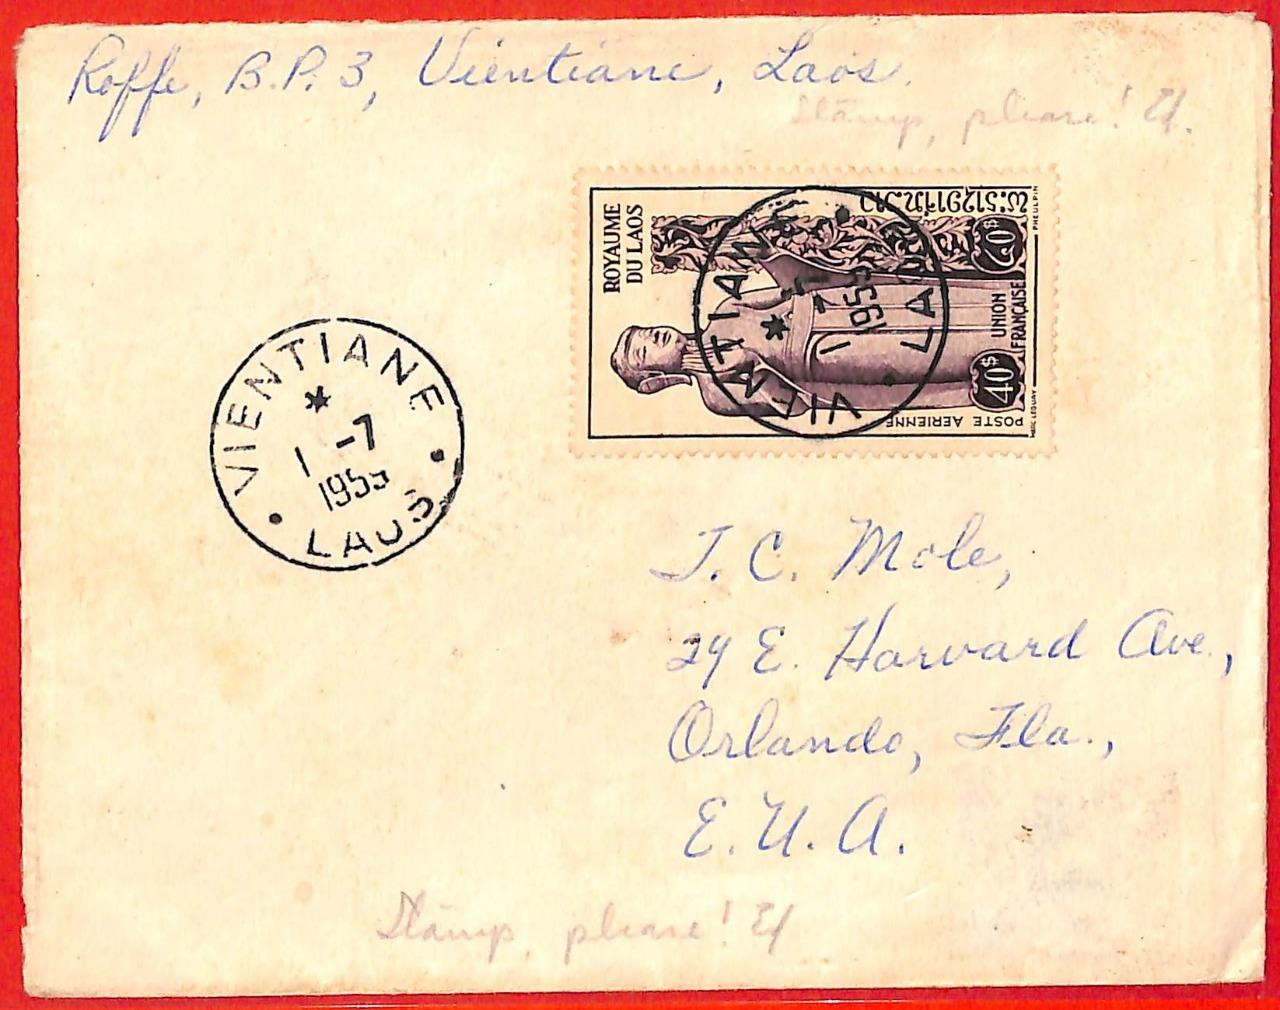 Roffe, B.P. 3, Vientiane, Laos.
Stamp, please! El.
ROYAUME
DU LAOS
40$
UNION
FRANÇAISE
POSTE AERIENNE
MARC LEGUAY
PHEULPIN
VIENTIANE
1 -7
1955
LAOS
VIENTIANE
1 -7
1955
LAOS
J. C. Mole,
24 E. Harvard Ave.,
Orlando, Fla.,
E.U.A.
Stamp, please! El